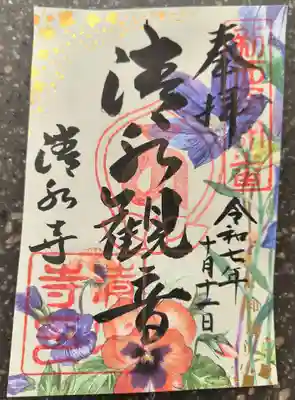 奉拝
令和七年
十月十一日
清水観音
清水寺